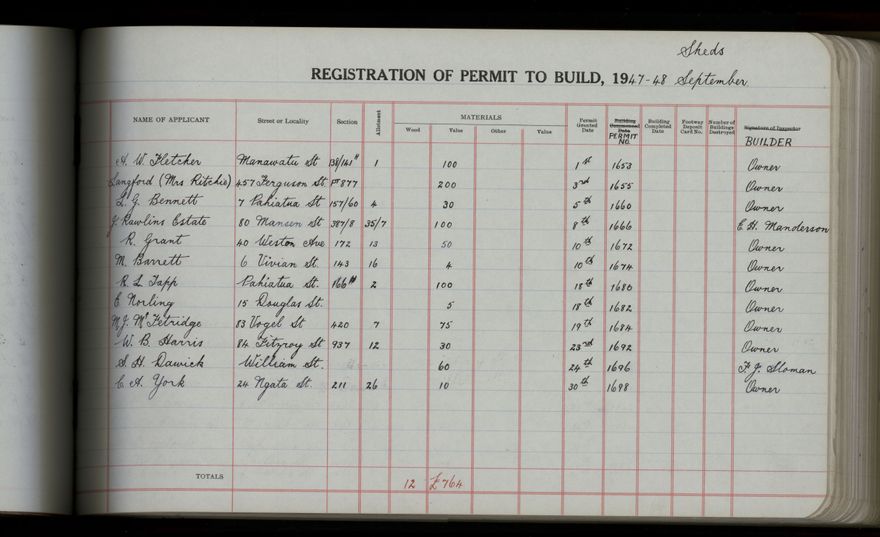 Sheds
REGISTRATION OF PERMIT TO BUILD, 1947-48 September.
NAME OF APPLICANT Street or Locality Section Allotment MATERIALS Wood Value Other Value Permit Granted Date Building Commenced Date PERMIT NO. Building Completed Date Footway Deposit Card No. Number of Buildings Destroyed Signature of Inspector BUILDER
A. W. Fletcher Manawatu St 138/141 1 100 1st 1653 Owner
Langford (Mrs Ritchie) 457 Ferguson St. PT 877 200 3rd 1655 Owner
L. G. Bennett 7 Pahiatua St 157/60 4 30 5th 1660 Owner
J. Rawlins Estate 80 Manson St 387/8 35/7 100 8th 1666 E. H. Manderson
R. Grant 40 Weston Ave 172 13 50 10th 1672 Owner
M. Barrett 6 Vivian St. 143 16 4 10th 1674 Owner
R. L. Tapp Pahiatua St. 166 2 100 18th 1680 Owner
E. Norling 15 Douglas St. 5 18th 1682 Owner
N. J. McFetridge 83 Vogel St 420 7 75 19th 1684 Owner
W. B. Harris 84 Fitzroy St 937 12 30 23rd 1692 Owner
S. H. Dawick William St. 60 24th 1696 F. J. Sloman
C. A. York 24 Ngata St. 211 26 10 30th 1698 Owner
TOTALS 12 £764